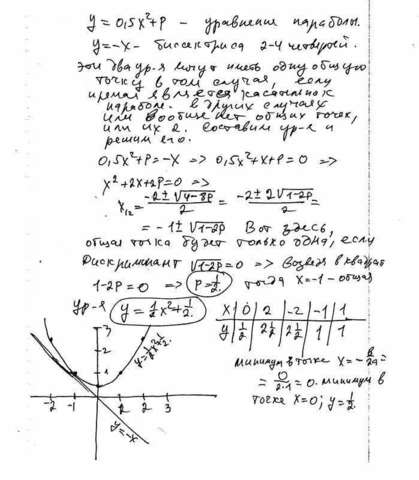 y = 0,5x²+P - уравнение параболы.
y=-x - биссектриса 2-4 четвертей.
Эти два ур-я могут иметь одну общую
точку в том случае, если
прямая является касательной к
параболе. В других случаях
или вообще нет общих точек,
или их 2. Составим ур-е и
решим его.
0,5x²+P=-x => 0,5x²+x+P=0 =>
x²+2x+2P=0 =>
x₁₂ = (-2±√(4-8P))/2 = (-2±2√(1-2P))/2 =
= -1±√(1-2P) Вот здесь,
общая точка будет только одна, если
Дискриминант √(1-2P)=0 => Возведя в квадрат
1-2P=0 => P=1/2. тогда x=-1 - общая
Ур-я y=1/2x²+1/2.
x 0 2 -2 -1 1
y 1/2 2 1/2 2 1/2 1 1
минимум в точке x=-b/2a=
= 0/2·1 = 0. минимум в
точке x=0; y=1/2.
3
2
1
y=1/2x²+1/2
-2 -1 1 2 3
y=-x